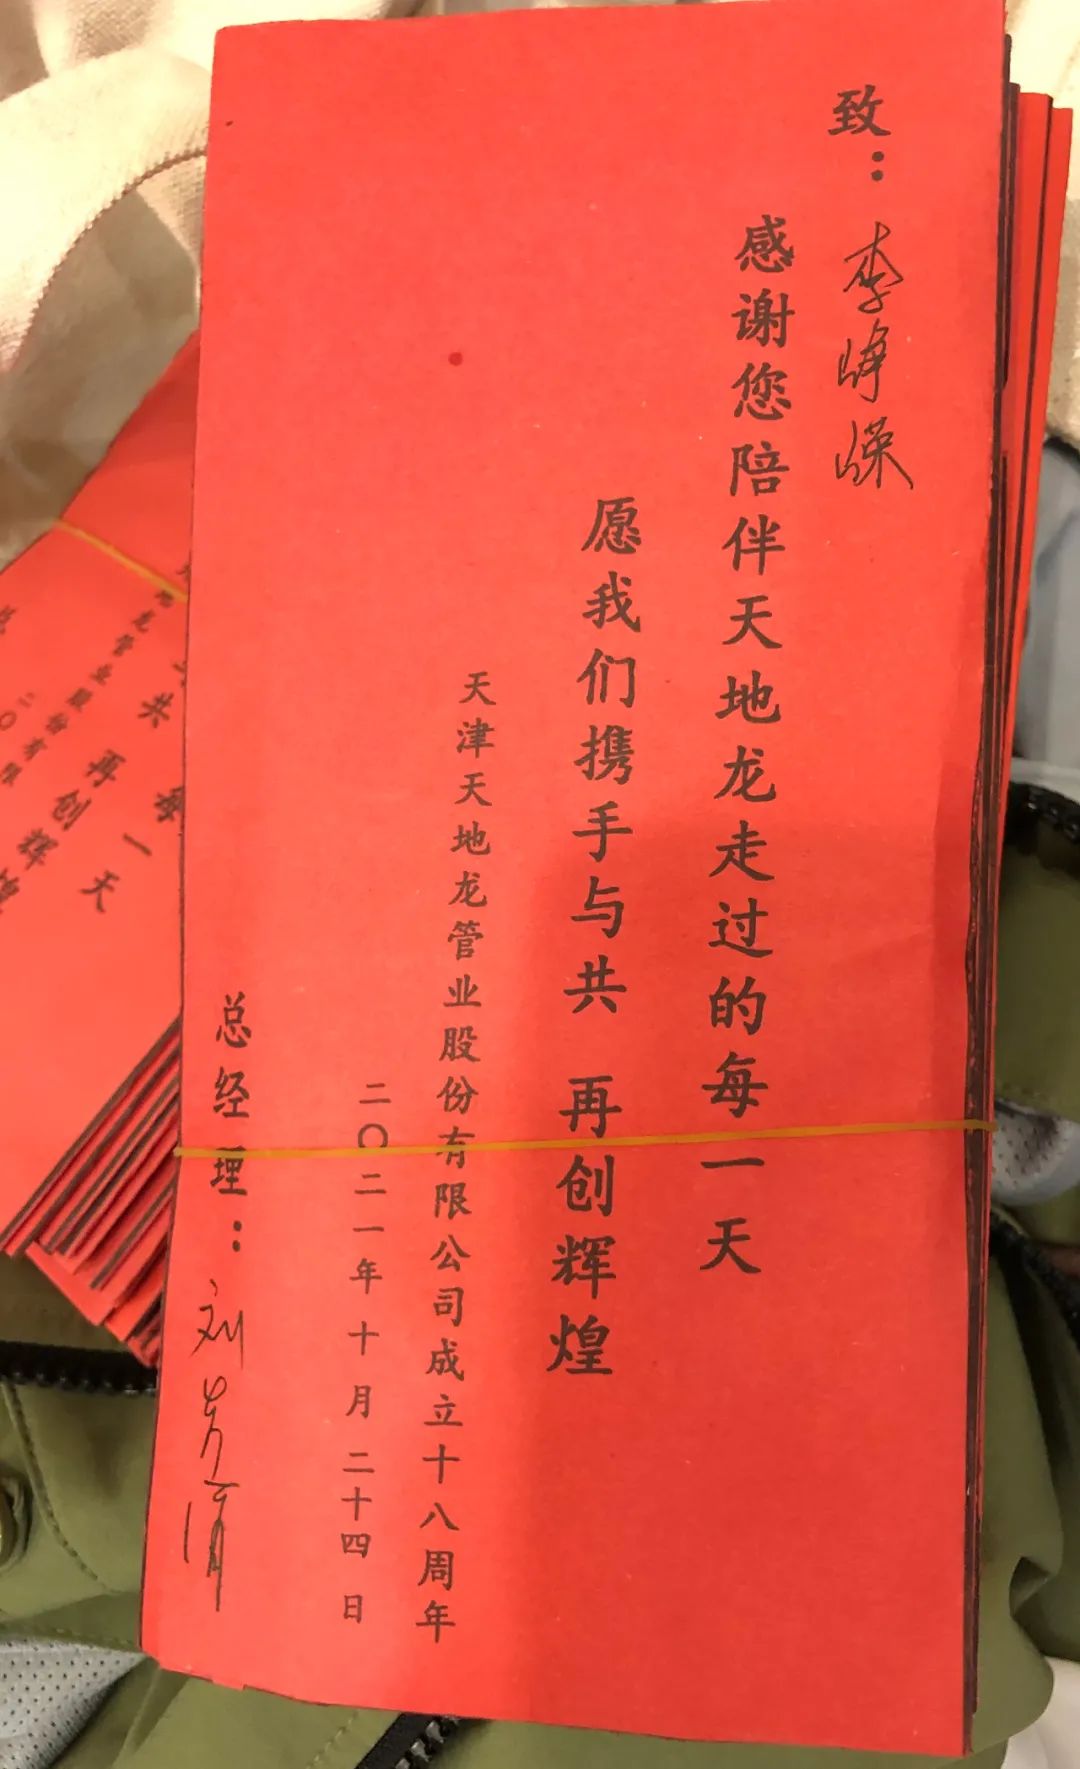 致：李峥嵘
感谢您陪伴天地龙走过的每一天
愿我们携手与共 再创辉煌
天津天地龙管业股份有限公司成立十八周年
二〇二一年十月二十四日
总经理：刘
一天
共 再创辉
地龙管业股份有限
二〇